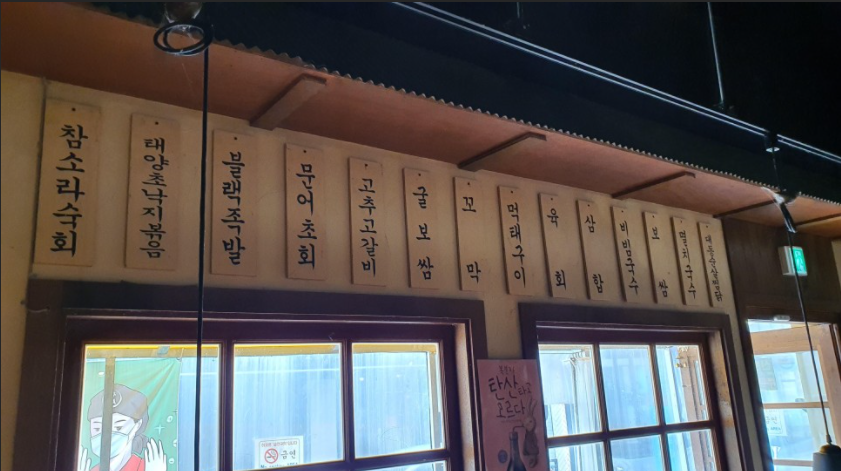 참소라숙회
태양초낙지볶음
블랙족발
문어초회
고추고갈비
굴보쌈
꼬막
먹태구이
육회
삼합
비빔국수
보쌈
멸치국수
탄산
오르다
금연